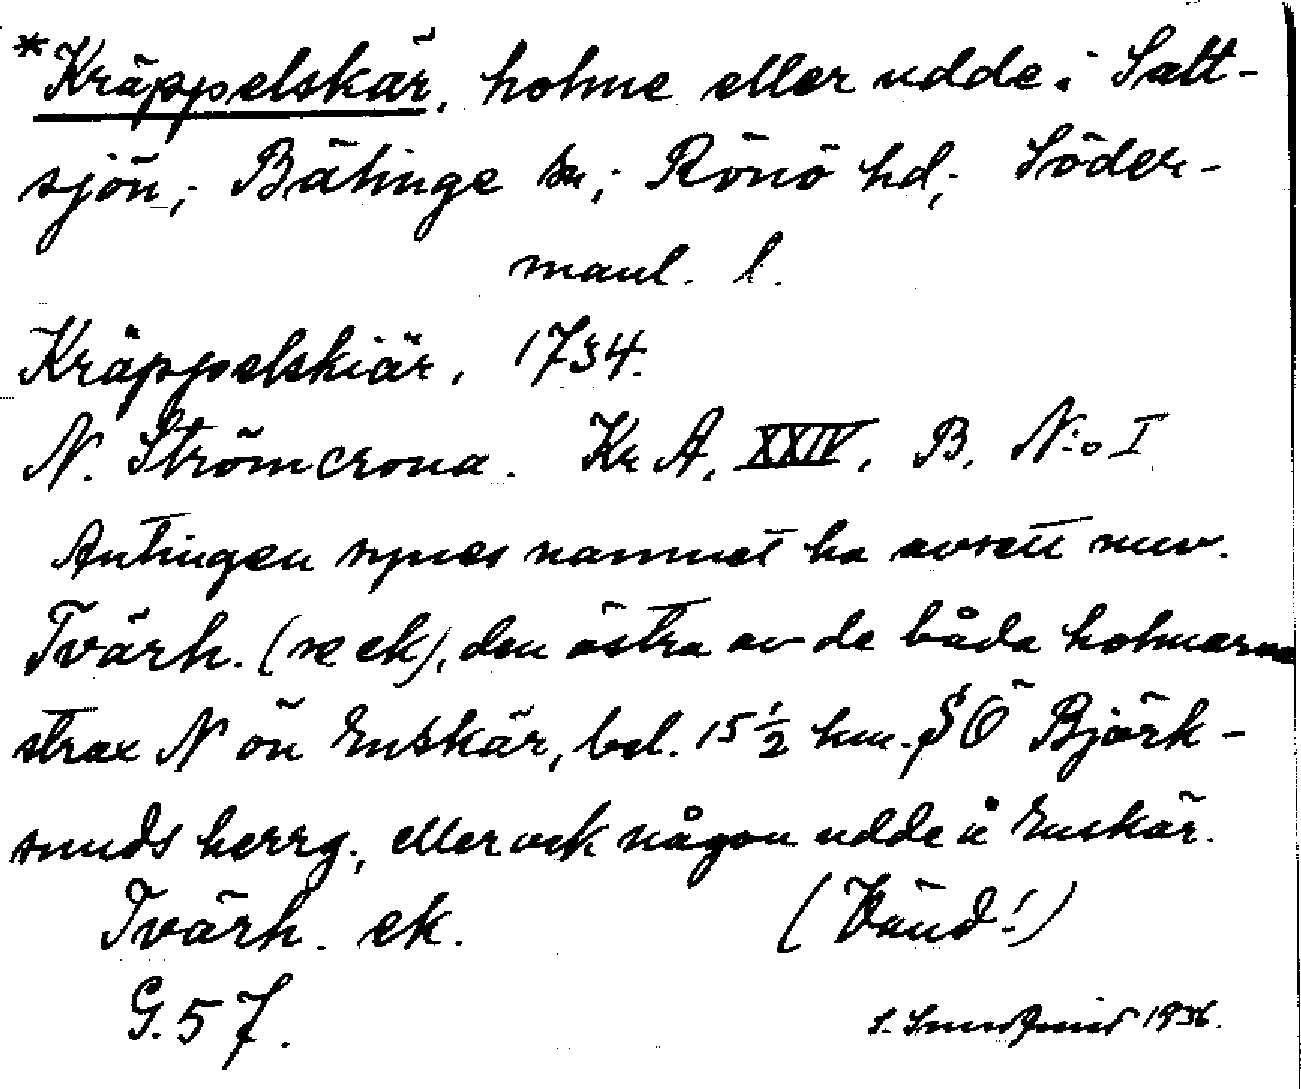 *Kräppelskär, holme eller udde i Salt-
sjön; Bälinge sn; Rönö hd; Söder-
manl. l.
Kräppelskiär, 1734.
N. Strömcrona. Kr A. XXIV. B. N:o I
Antingen synes namnet ha avsett nuv.
Tvärh. (se ek), den östra av de båda holmarna
strax N ön Enskär, bel. 15 1/2 km. SÖ Björk-
sunds herrg., eller ock någon udde å Enskär.
Tvärh. ek. (Vänd!)
G. 57.
1936.